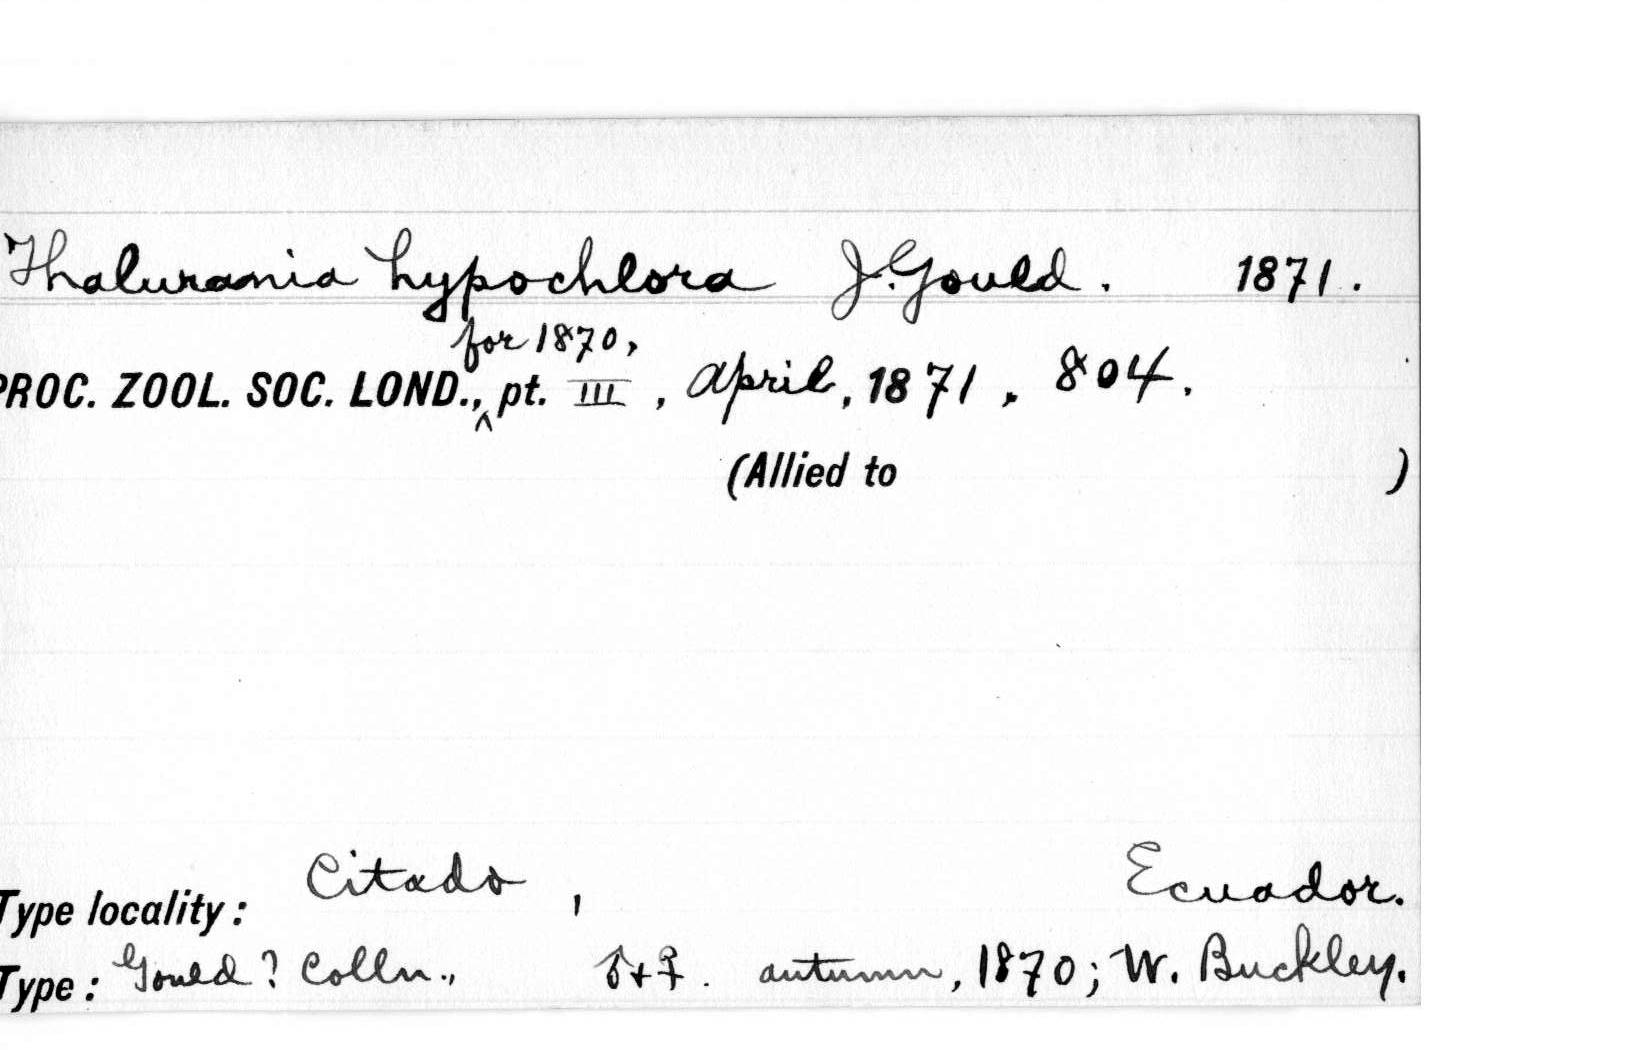 Thalurania hypochlora J. Gould. 1871.
for 1870,
PROC. ZOOL. SOC. LOND., ^ pt. III, April, 1871, 804.
(Allied to )
Type locality: Citado, Ecuador.
Type: Gould? Colln., ♂+♀. autumn, 1870; W. Buckley.